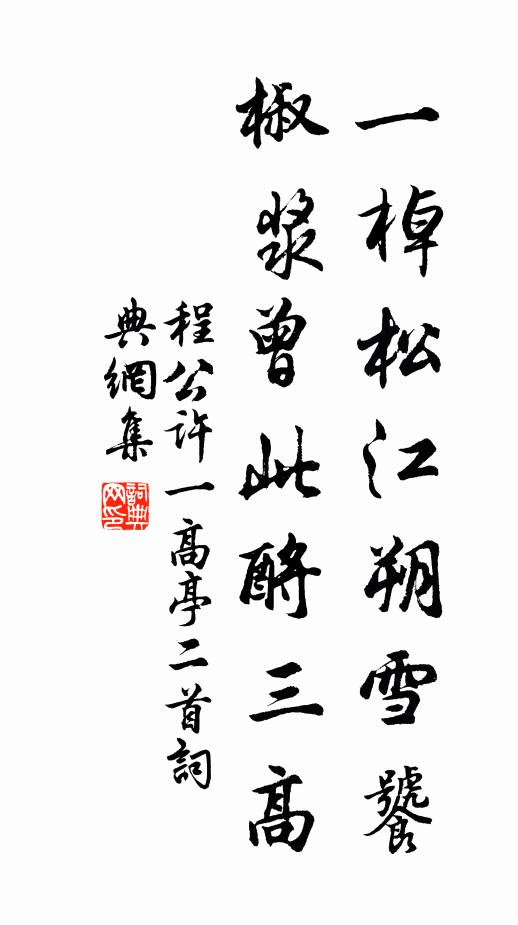 一棹松江朔雪饕
椒漿曾此酹三高
程公許一高亭二首詞
典網集
詞典网印